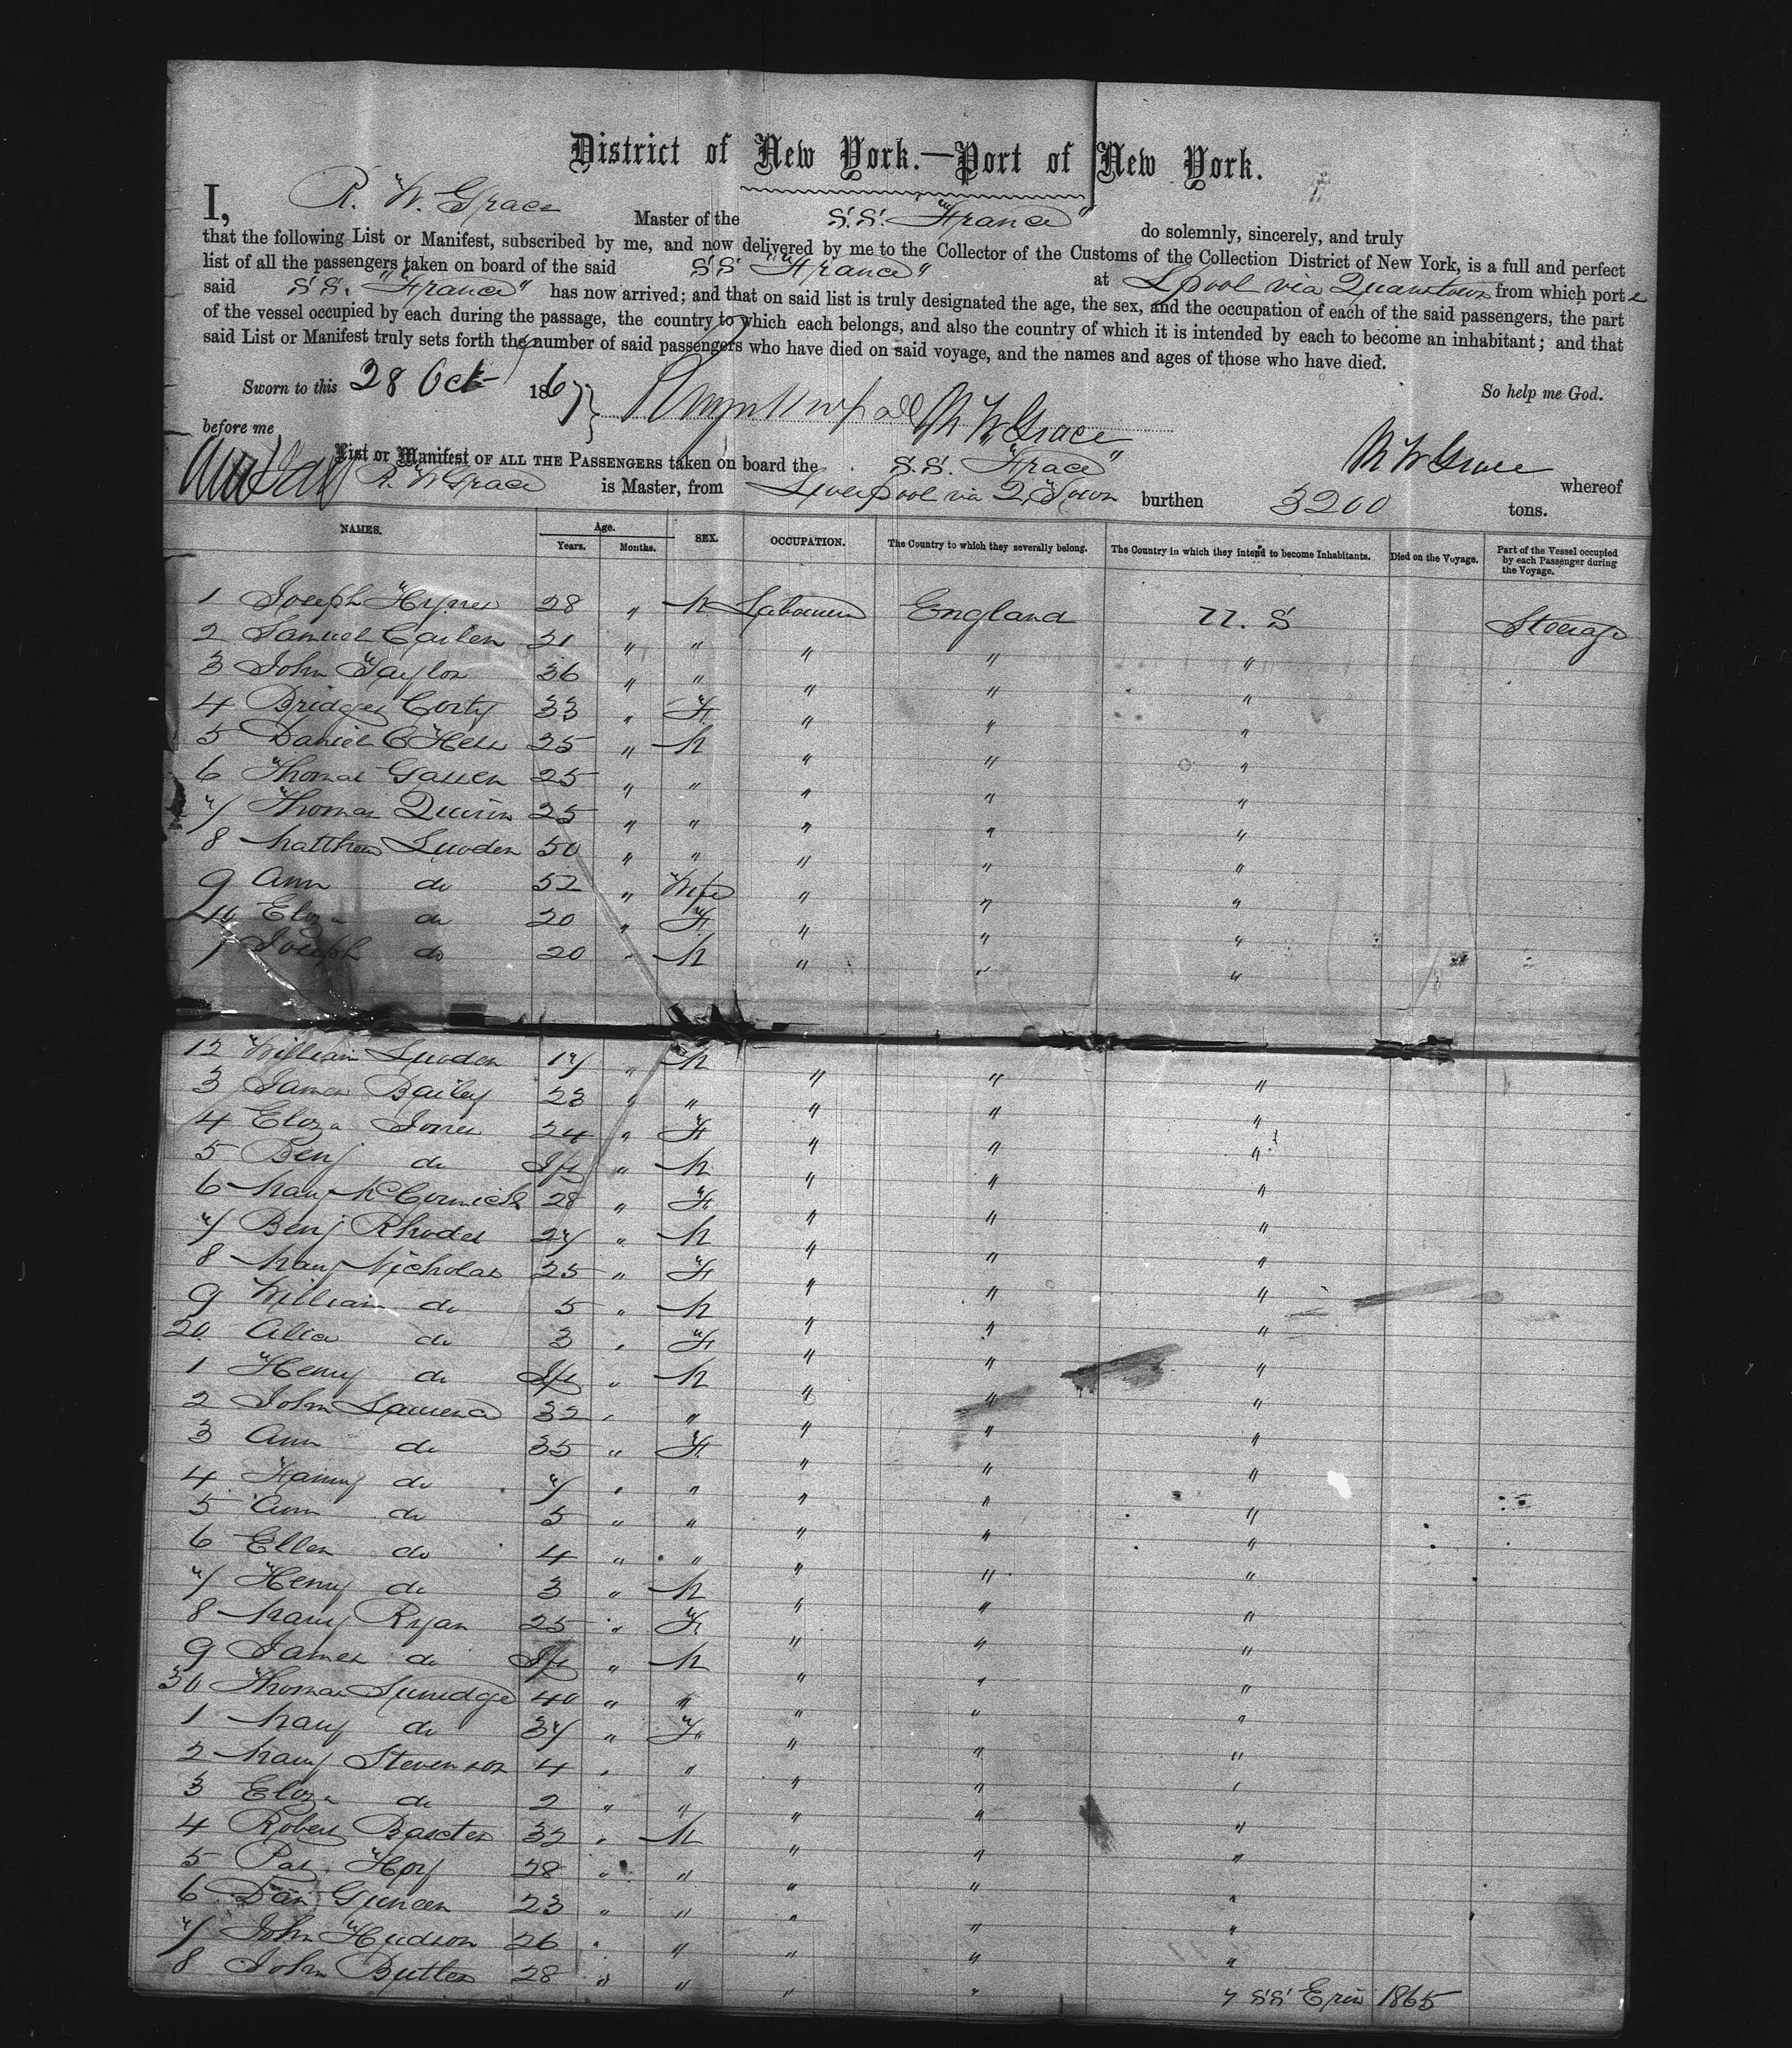 District of New York.—Port of New York.
I, R. W. Grace Master of the S.S. "France" do solemnly, sincerely, and truly
that the following List or Manifest, subscribed by me, and now delivered by me to the Collector of the Customs of the Collection District of New York, is a full and perfect
list of all the passengers taken on board of the said SS "France" at Lpool via Queenstown from which port
said S.S. "France" has now arrived; and that on said list is truly designated the age, the sex, and the occupation of each of the said passengers, the part
of the vessel occupied by each during the passage, the country to which each belongs, and also the country of which it is intended by each to become an inhabitant; and that
said List or Manifest truly sets forth the number of said passengers who have died on said voyage, and the names and ages of those who have died.
Sworn to this 28 Oct 1867 } So help me God.
before me R W Grace
List or Manifest OF ALL THE PASSENGERS taken on board the S.S. "France" R W Grace whereof
R. W Grace is Master, from Liverpool via Q Town burthen 3200 tons.
NAMES. Age. Years. Months. SEX. OCCUPATION. The Country to which they severally belong. The Country in which they intend to become Inhabitants. Died on the Voyage. Part of the Vessel occupied by each Passenger during the Voyage.
1 Joseph Hynes 28 " M Labourer England U. S Steerage
2 Samuel 21 " " " " "
3 John Taylor 36 " " " " "
4 Bridget 33 " F " " "
5 Daniel 25 " M " " "
6 Thomas 25 " " " " "
7 Thomas Quinn 25 " " " " "
8 Matthew 50 " " " " "
9 Ann do 52 " Wife " " "
10 Eliza do 20 " F " " "
1 Joseph do 20 " M " " "
12 William 17 " M " " "
3 James Bailey 23 " " " " "
4 Eliza Jones 24 " F " " "
5 Benj do Inf " M " " "
6 Mary McCormick 28 " F " " "
7 Benj Rhodes 27 " M " " "
8 Mary Nicholas 25 " F " " "
9 William do 5 " M " " "
20 Alice do 3 " F " " "
1 Henry do Inf " M " " "
2 John Lawrence 32 " " " " "
3 Ann do 35 " F " " "
4 Fanny do 7 " " " " "
5 Ann do 5 " " " " "
6 Ellen do 4 " " " " "
7 Henry do 3 " M " " "
8 Mary Ryan 25 " F " " "
9 James do Inf " M " " "
30 Thomas 40 " " " " "
1 Mary do 37 " F " " "
2 Mary Stevenson 4 " " " " "
3 Eliza do 2 " " " " "
4 Robert Baxter 32 " M " " "
5 Pat Hoy 28 " " " " "
6 Dan 23 " " " " "
7 John Hudson 26 " " " " "
8 John Butler 28 " " " " "
SS Erin 1865